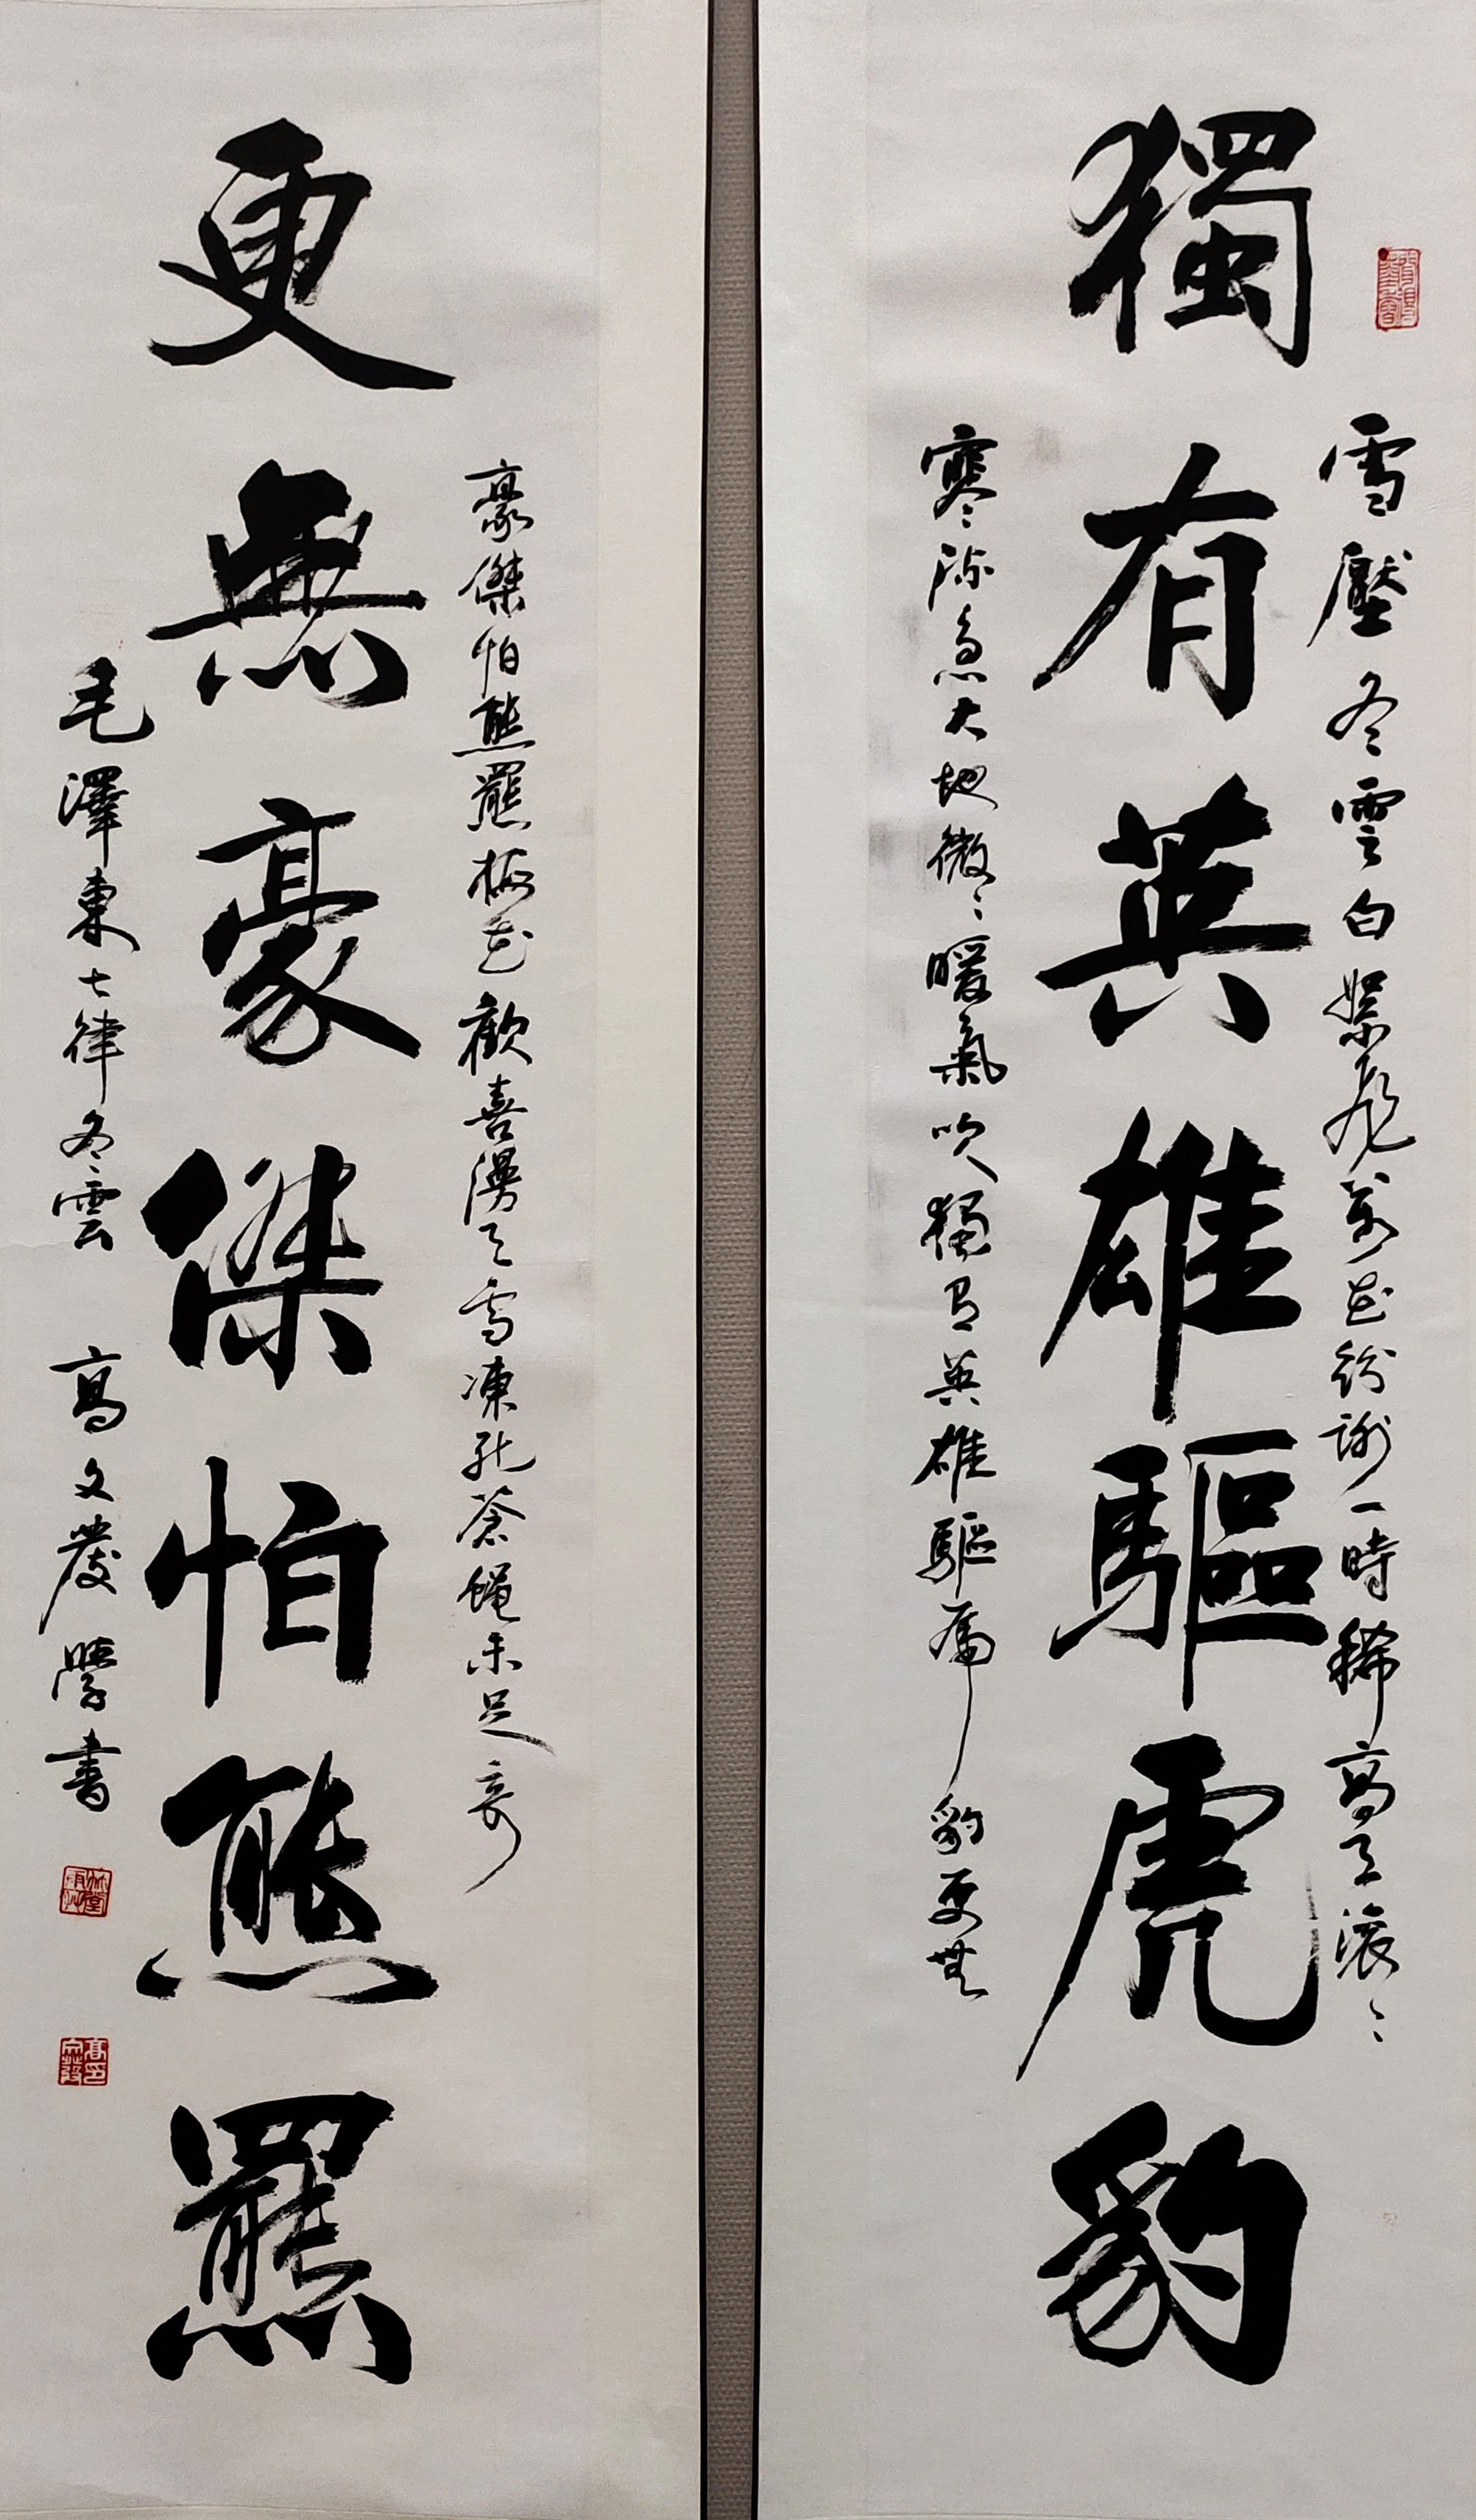 雪壓冬雲白絮飛萬花紛謝一時稀高天滾〻
獨有英雄驅虎豹
寒流急大地微〻暖氣吹獨有英雄驅虎豹更無
豪傑怕熊羆梅花歡喜漫天雪凍死蒼蠅未足奇
更無豪傑怕熊羆
毛澤東七律冬雲 高文發學書